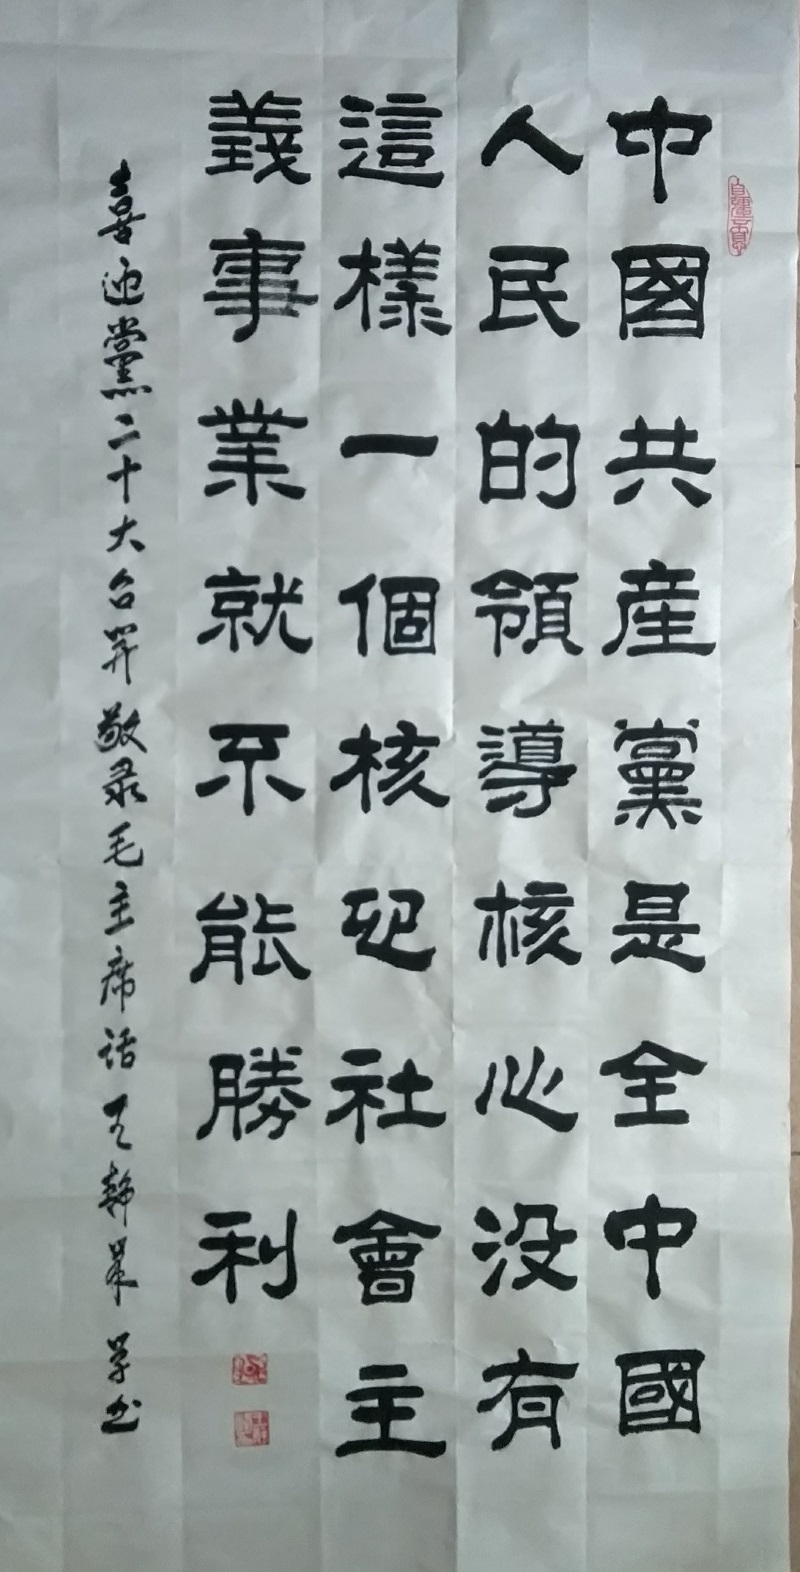 中國共産黨是全中國
人民的領導核心没有
這樣一個核心社會主
義事業就不能勝利
喜迎黨二十大召开敬录毛主席话王学书